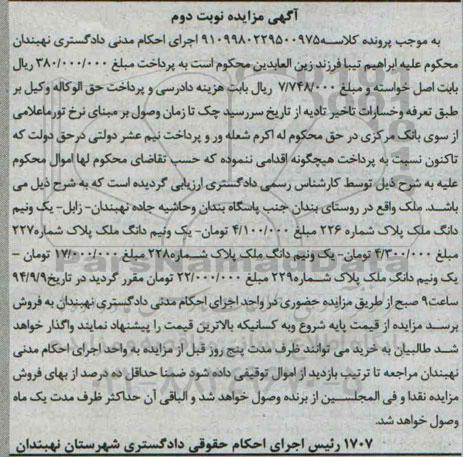 آگهی مزایده نوبت دوم
به موجب پرونده کلاسه۹۱۰۹۹۸۰۲۲۹۵۰۰۹۷۵ اجرای احکام مدنی دادگستری نهبندان
محکوم علیه ابراهیم تیبا فرزند زین العابدین محکوم است به پرداخت مبلغ ۳۸۰/۰۰۰/۰۰۰ ریال
بابت اصل خواسته و مبلغ ۷/۷۴۸/۰۰۰ ریال بابت هزینه دادرسی و پرداخت حق الوکاله وکیل بر
طبق تعرفه وخسارات تاخیر تادیه از تاریخ سررسید چک تا زمان وصول بر مبنای نرخ تورماعلامی
از سوی بانک مرکزی در حق محکوم له اکرم شعله ور و پرداخت نیم عشر دولتی درحق دولت که
تاکنون نسبت به پرداخت هیچگونه اقدامی ننموده که حسب تقاضای محکوم لها اموال محکوم
علیه به شرح ذیل توسط کارشناس رسمی دادگستری ارزیابی گردیده است که به شرح ذیل می
باشد. ملک واقع در روستای بندان جنب پاسگاه بندان وحاشیه جاده نهبندان- زابل- یک ونیم
دانگ ملک پلاک شماره ۲۲۶ مبلغ ۴/۱۰۰/۰۰۰ تومان- یک ونیم دانگ ملک پلاک شماره۲۲۷
مبلغ ۴/۳۰۰/۰۰۰ تومان- یک ونیم دانگ ملک پلاک شماره۲۲۸ مبلغ ۱۷/۰۰۰/۰۰۰ تومان –
یک ونیم دانگ ملک پلاک شماره۲۲۹ مبلغ ۲۲/۰۰۰/۰۰۰ تومان مقرر گردید در تاریخ۹۴/۹/۹
ساعت۹ صبح از طریق مزایده حضوری در واحد اجرای احکام مدنی دادگستری نهبندان به فروش
برسد مزایده از قیمت پایه شروع وبه کسانیکه بالاترین قیمت را پیشنهاد نمایند واگذار خواهد
شد طالبیان به خرید می توانند ظرف مدت پنج روز قبل از مزایده به واحد اجرای احکام مدنی
نهبندان مراجعه تا ترتیب بازدید از اموال توقیفی داده شود ضمنا حداقل ده درصد از بهای فروش
مزایده نقدا و فی المجلسین از برنده وصول خواهد شد و الباقی آن حداکثر ظرف مدت یک ماه
وصول خواهد شد.
۱۷۰۷ رئیس اجرای احکام حقوقی دادگستری شهرستان نهبندان